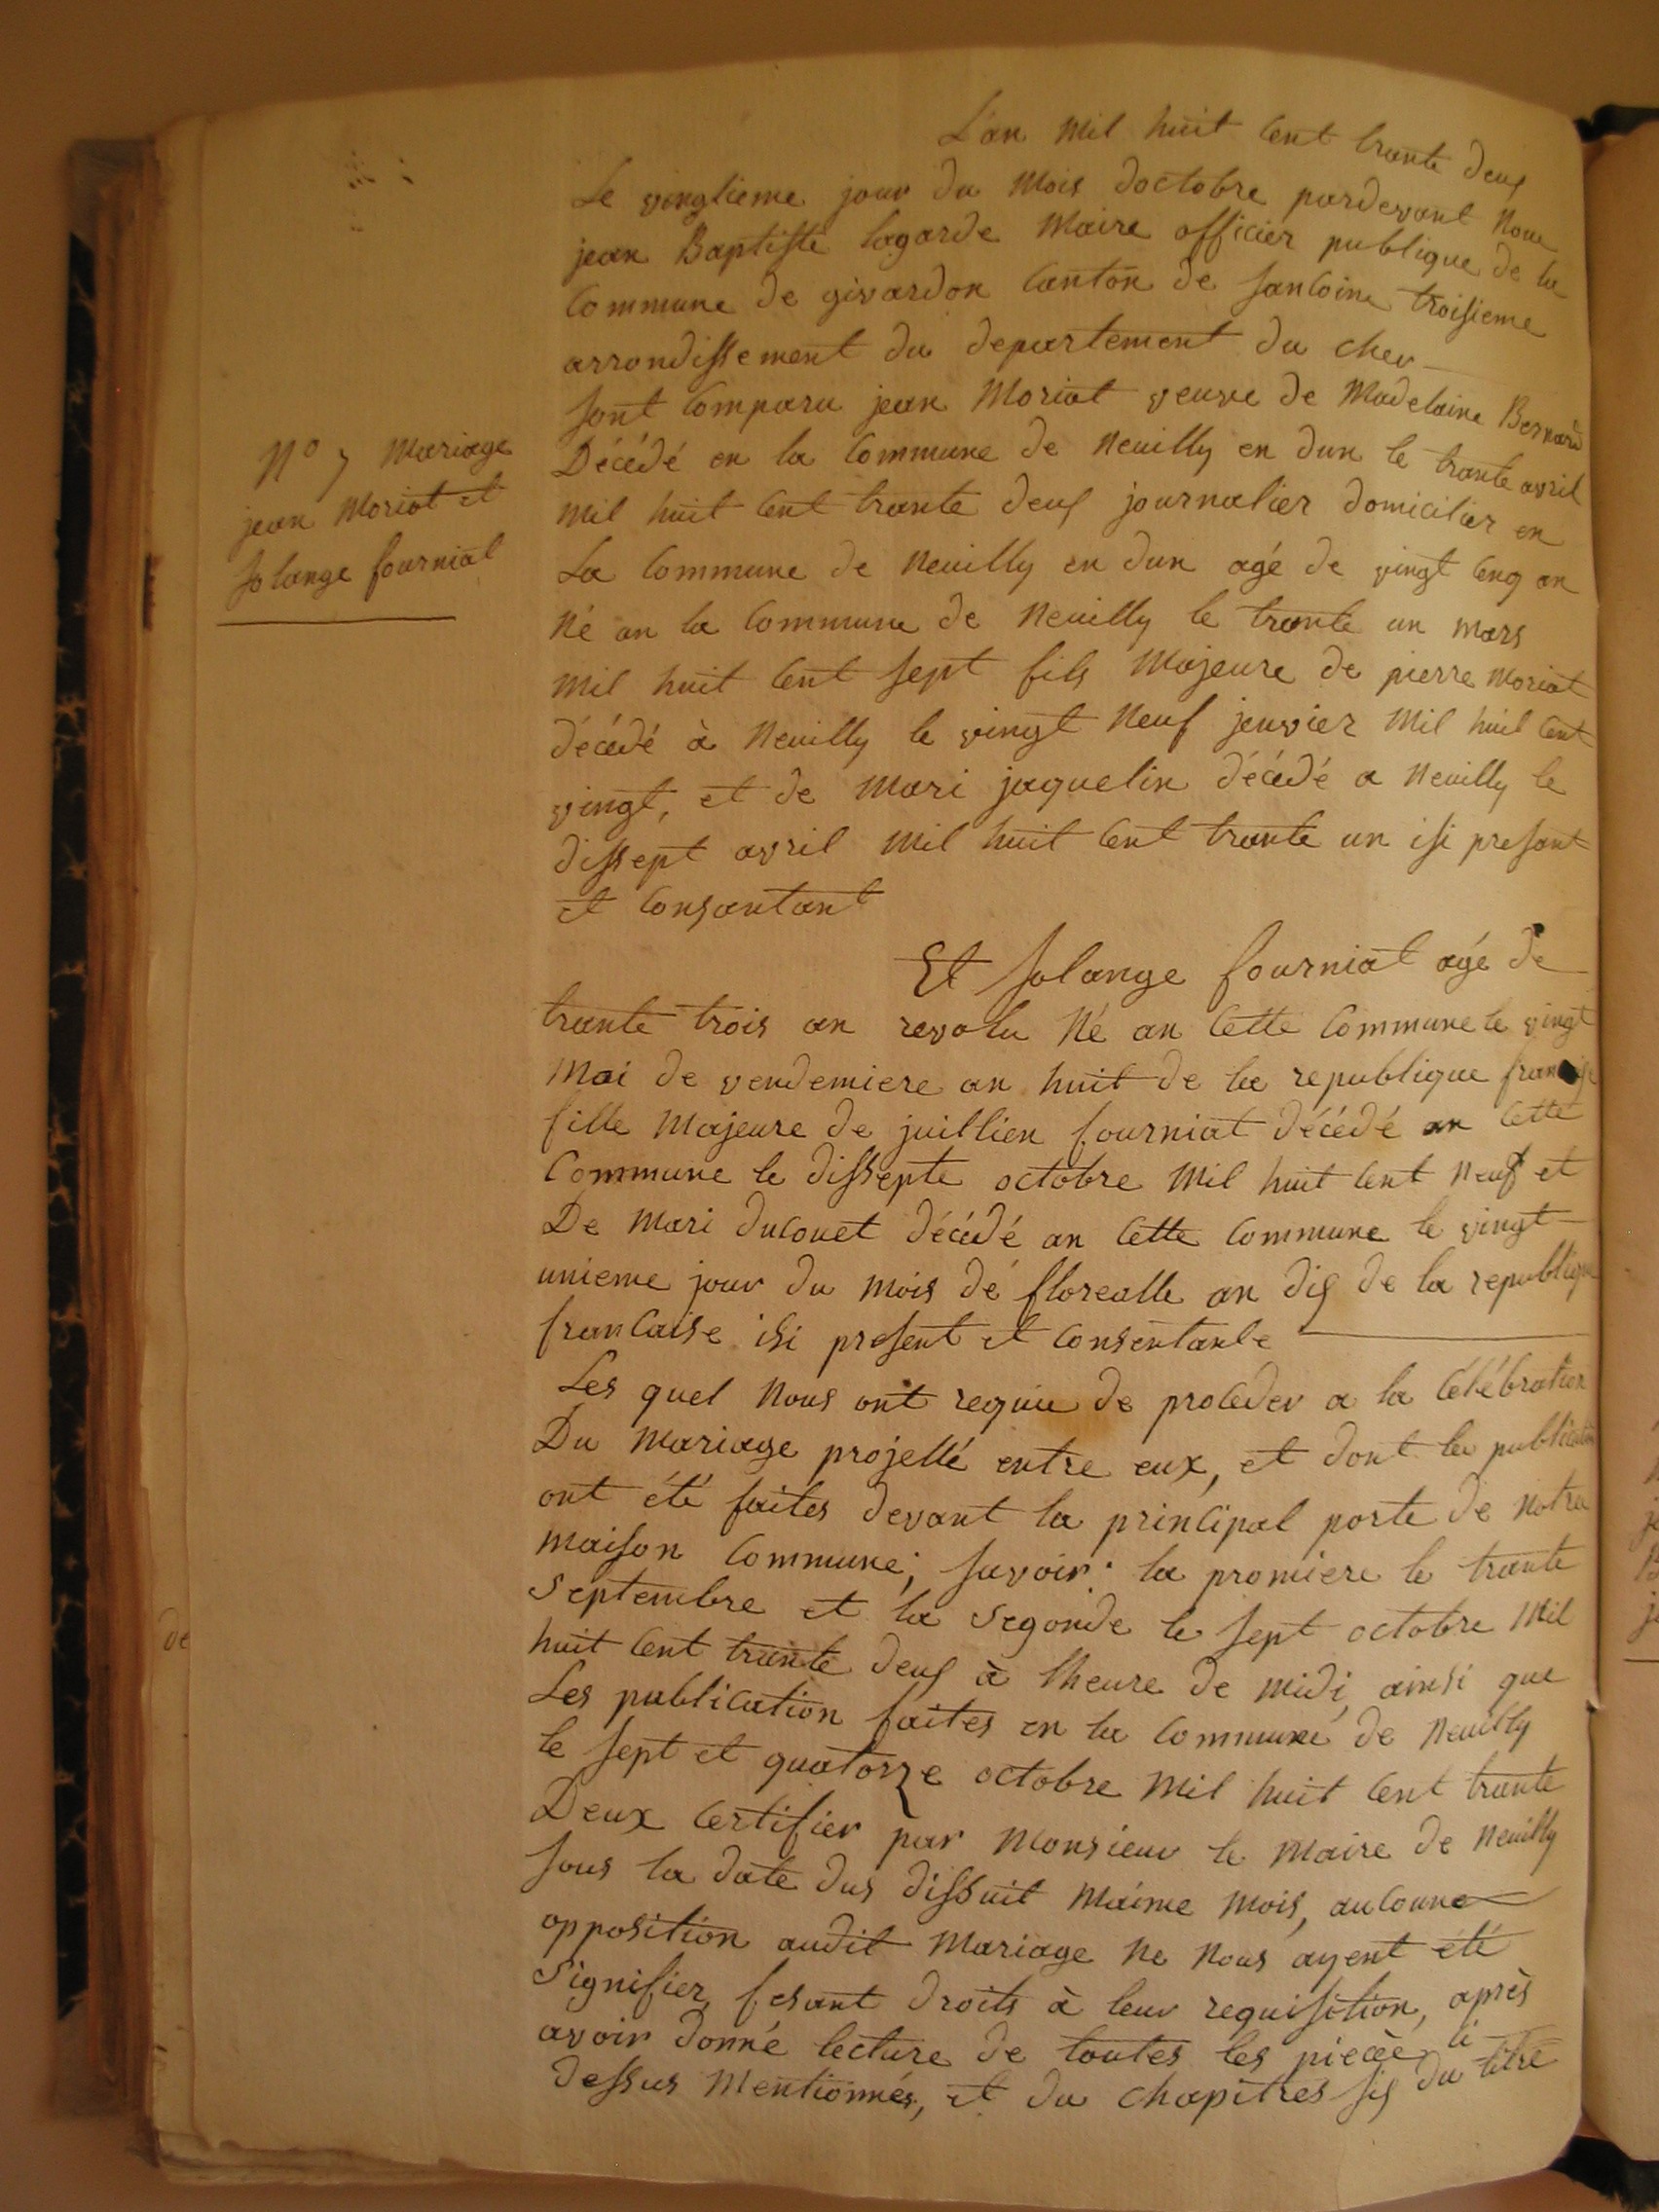 L'an mil huit cent trante deux
Le vingtieme jour du mois doctobre pardevant nous
jean Baptiste lagarde maire officier publique de la
commune de givardon canton de sancoine troisieme
arrondissement du departement du cher
sont comparu jean Moriat veuve de Madelaine Bernard
Décédé en la commune de neuilly en dun le trante avril
mil huit cent trante deux journalier domicilier en
La commune de neuilly en dun agé de vingt cenq an
Né an la commune de neuilly le trante un mars
mil huit cent sept fils majeure de pierre moriat
décédé à neuilly le vingt neuf jenvier mil huit cent
vingt, et de mari jaquelin décédé a neuilly le
dissept avril mil huit cent trante un isi presant
et consantant
N° 7 mariage
jean moriat et
solange fourniat
Et solange fourniat agé de
trante trois an revolu Né an cette commune le vingt
mai de vendemiere an huit de la republique francaise
fille majeure de juillien fourniat décédé an cette
commune le dissepte octobre mil huit cent neuf et
De mari ducouet décédé an cette commune le vingt
unieme jour du mois de florealle an dix de la republique
francaise isi present et consentante
Les quel nous ont requie de proceder a la célébration
Du mariage projetté entre eux, et dont les publication
ont été faites devant la principal porte de notre
maison commune; savoir: la promiere le trante
septembre et la segonde le sept octobre mil
huit cent trante deux à lheure de midi ainsi que
Les publication faites en la commune de neuilly
le sept et quatorze octobre mil huit cent trante
Deux certifier par monsieur le maire de neuilly
sous la date dus dissuit maime mois, aucoune
opposition audit mariage ne nous ayent été
signifier, fesant droits à leur requisition, après
avoir donné lecture de toutes les pieceè ci
dessus mentionnés, et du chapitres six du titre
de